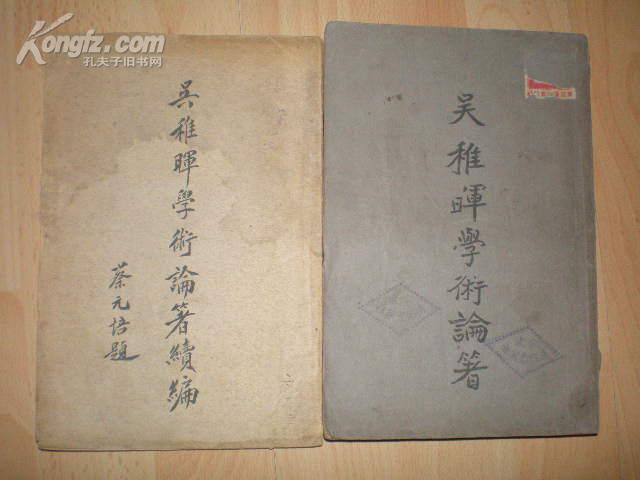 Kongfz.com
孔夫子旧书网
吳稚暉學術論著續編
蔡元培題
吴稚暉學術論著